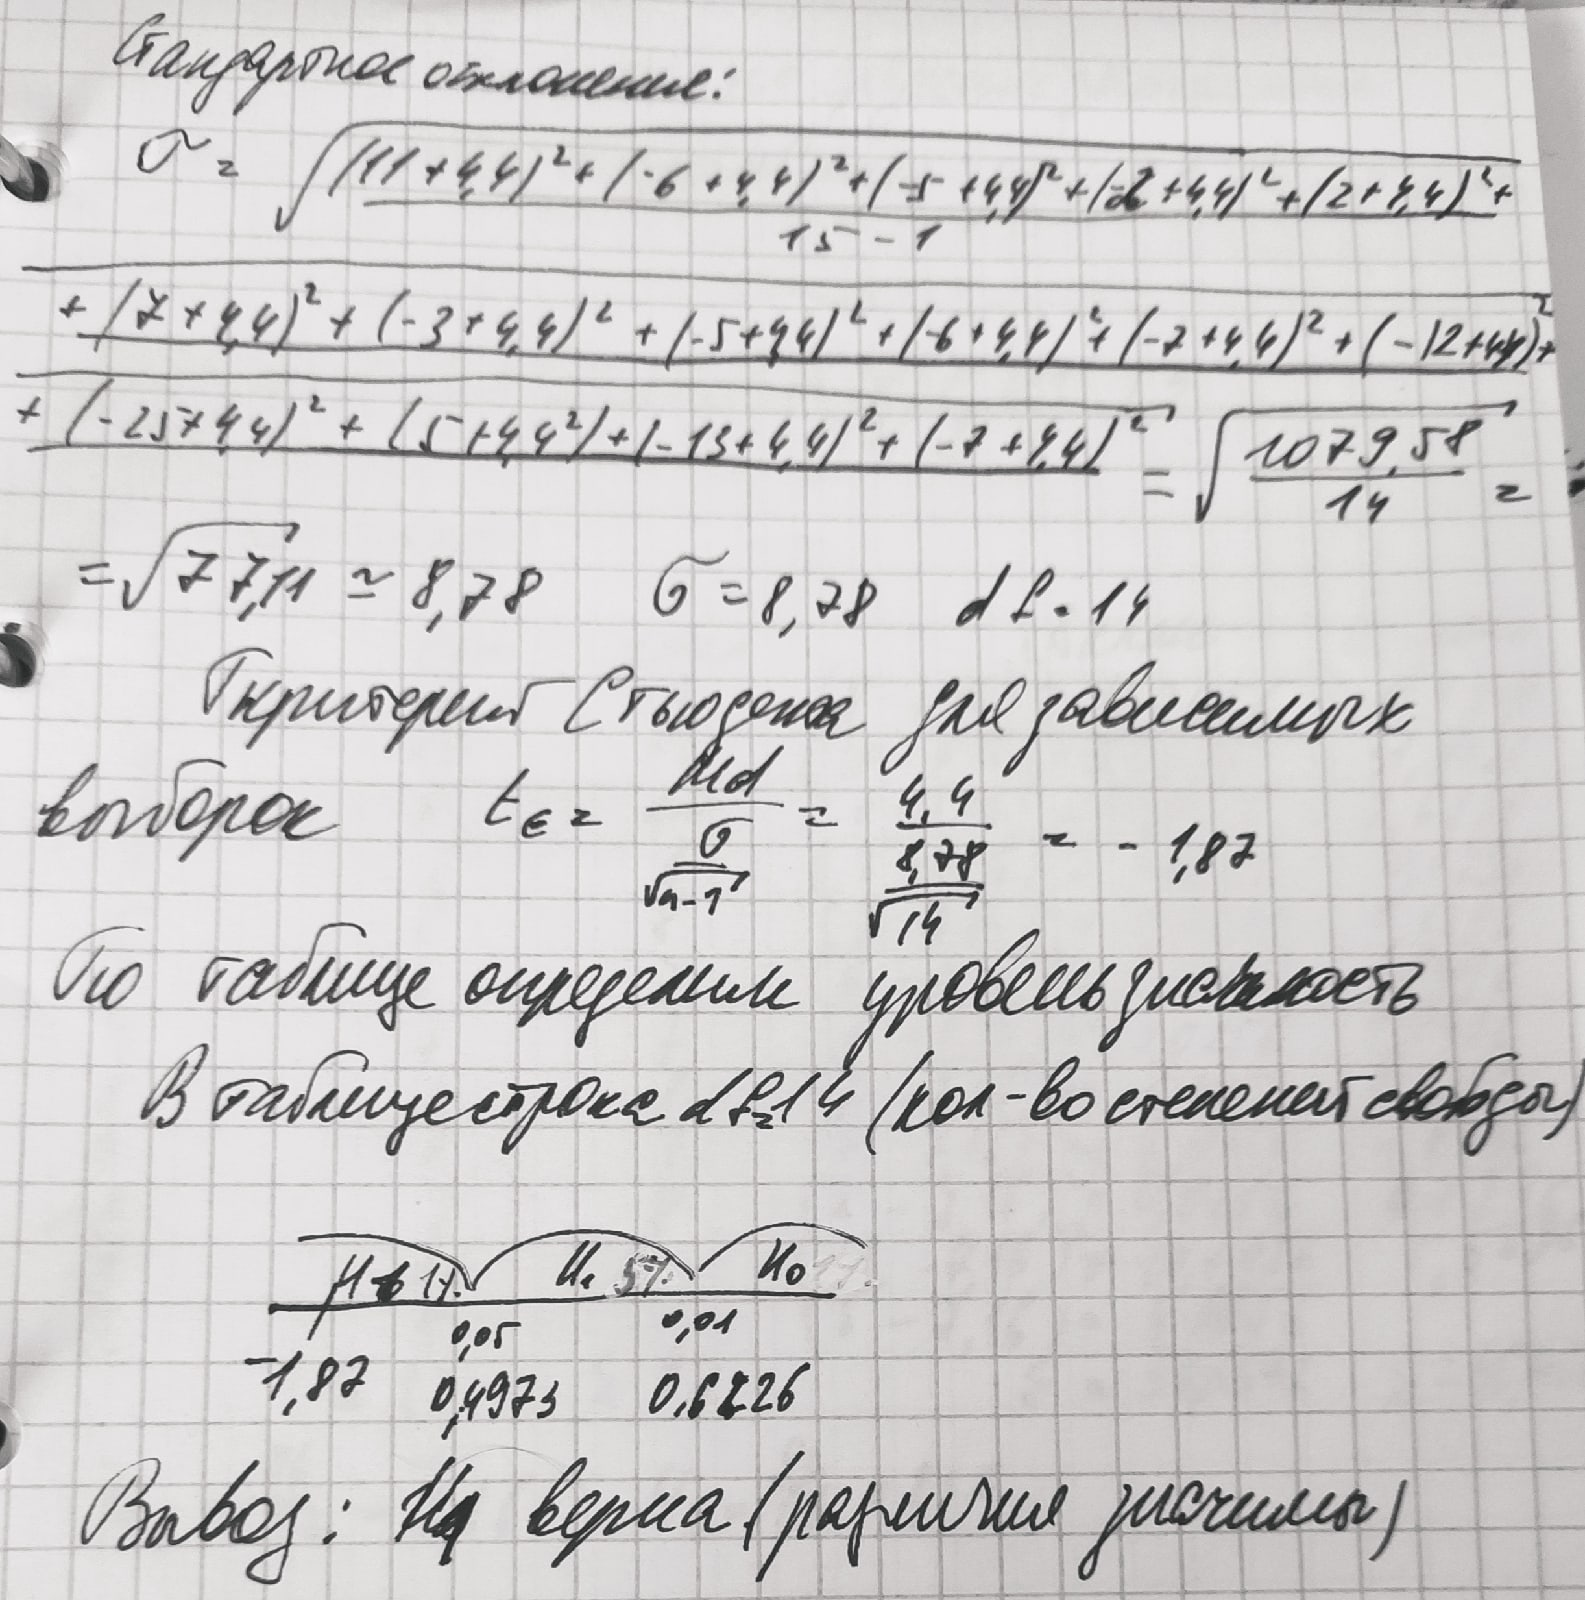 Стандартное отклонение:
σ = √((11+4,4)²+(-6+4,4)²+(-5+4,4)²+(-2+4,4)²+(2+4,4)²+
15-1
+(7+4,4)²+(-3+4,4)²+(-5+4,4)²+(-6+4,4)²+(-7+4,4)²+(-12+4,4)²+
+(-25+4,4)²+(5+4,4²)+(-13+4,4)²+(-7+4,4)² = √(1079,58/14) =
=√77,11 ≃ 8,78 σ=8,78 df=14
Т критерий Стьюдента для зависимых
выборок tε = Md/(σ/√n-1) = 4,4/(8,78/√14) = -1,87
По таблице определим уровень значимость
В таблице строка df=14 (кол-во степеней свободы)
1% H₁ 5% H₀
0,05 0,01
-1,87 0,4973 0,6226
Вывод: H₁ верна (различия значимы)